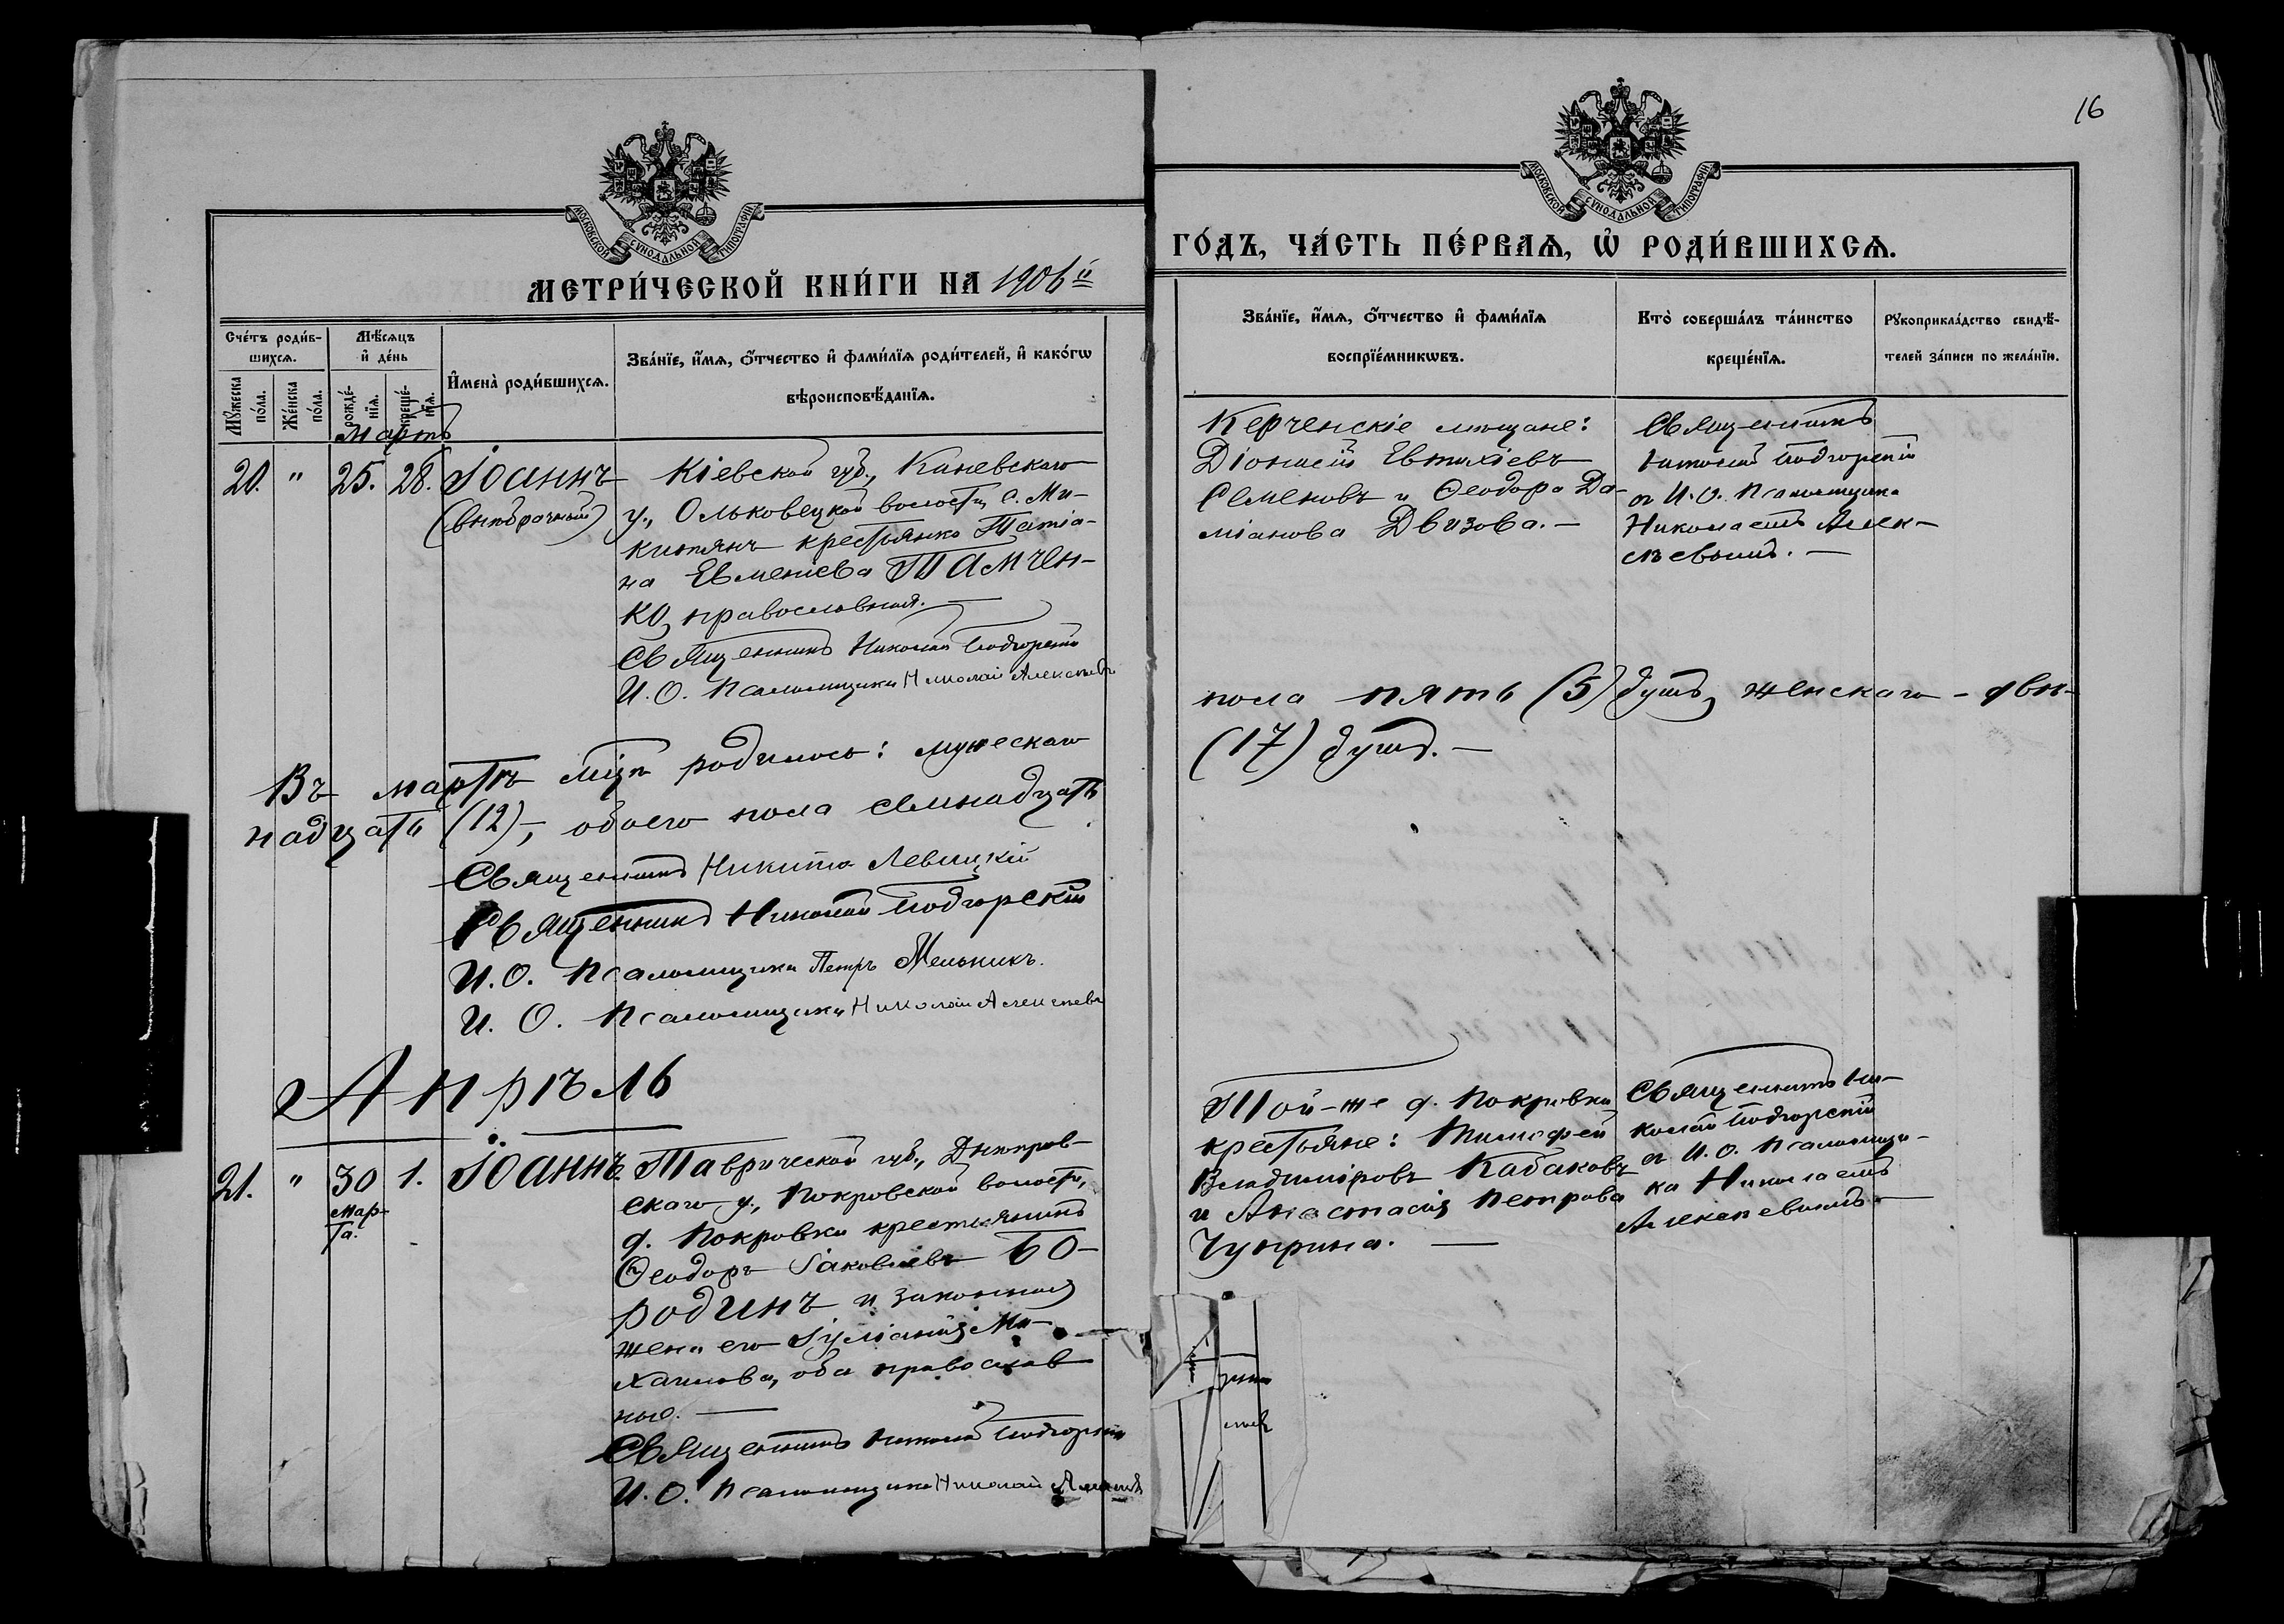 16
МОСКОВСКОЙ СѴНОДАЛЬНОЙ ТИПОГРАФІИ
МОСКОВСКОЙ СѴНОДАЛЬНОЙ ТИПОГРАФІИ
МЕТРИ́ЧЕСКОЙ КНИ́ГИ НА 1906й
ГО́ДЪ, ЧА́СТЬ ПЕ́РВАѦ, Ѡ҆ РОДИ́ВШИХСѦ.
Сче́тъ роди́в-
шихсѧ.
Мꙋ́жеска по́ла.
Же́нска по́ла.
Мѣ́сѧцъ
и҆ де́нь
рожде́-
нїѧ.
креще́-
нїѧ.
И҆мена̀ роди́вшихсѧ.
Зва́нїе, и҆́мѧ, ѻ҆́тчество и҆ фами́лїѧ роди́телей, и҆ како́гѡ
вѣроисповѣ́данїѧ.
Зва́нїе, и҆́мѧ, ѻ҆́тчество и҆ фами́лїѧ
воспрїе́мникѡвъ.
Кто̀ соверша́лъ та́инство
креще́нїѧ.
Рꙋкоприкла́дство свидѣ́-
телей за́писи по жела́нїю.
Мартъ
20. " 25. 28. Іоаннъ
(внѣбрачный)
Кіевской губ., Каневскаго
у., Ольховецкой волости, с. Ми-
крестьянка Татіа-
на Евменіева Тамчен-
ко, православная. —
Священникъ Николай Подгорскій
И. О. Псаломщика Николай Алексѣевъ
Керченскіе мѣщане:
Діонисій Евтихіевъ
Семеновъ и Ѳеодора Да-
міанова Двизова. —
Священникъ
Николай Подгорскій
съ И. О. Псаломщика
Николаемъ Алек-
сѣевымъ. —
Въ мартѣ мцѣ родилось: мужескаго
пола пять (5) душъ, женскаго - двѣ-
надцать (12) -, обоего пола семнадцать
(17) душъ. —
Священникъ Никита Левицкій
Священникъ Николай Подгорскій
И. О. Псаломщика Петръ Мельникъ.
И. О. Псаломщика Николай Алексѣевъ
Апрѣль
21. " 30 1. Іоаннъ.
мар-
та.
Таврической губ., Днѣпров-
скаго у., Покровской волости,
д. Покровки крестьянинъ
Ѳеодоръ Іаковлевъ Бо-
родинъ и законная
жена его Іуліанія Ми-
хаилова, оба православ
ные. —
Священникъ Николай Подгорскій
И. О. Псаломщика Николай Алексѣевъ
Той-же д. Покровки
крестьяне: Тимофей
Владиміровъ Кабаковъ
и Анастасія Петрова
Чуприна. —
Священникъ Ни-
колай Подгорскій
съ И. О. Псаломщи-
ка Николаемъ
Алексѣевымъ —